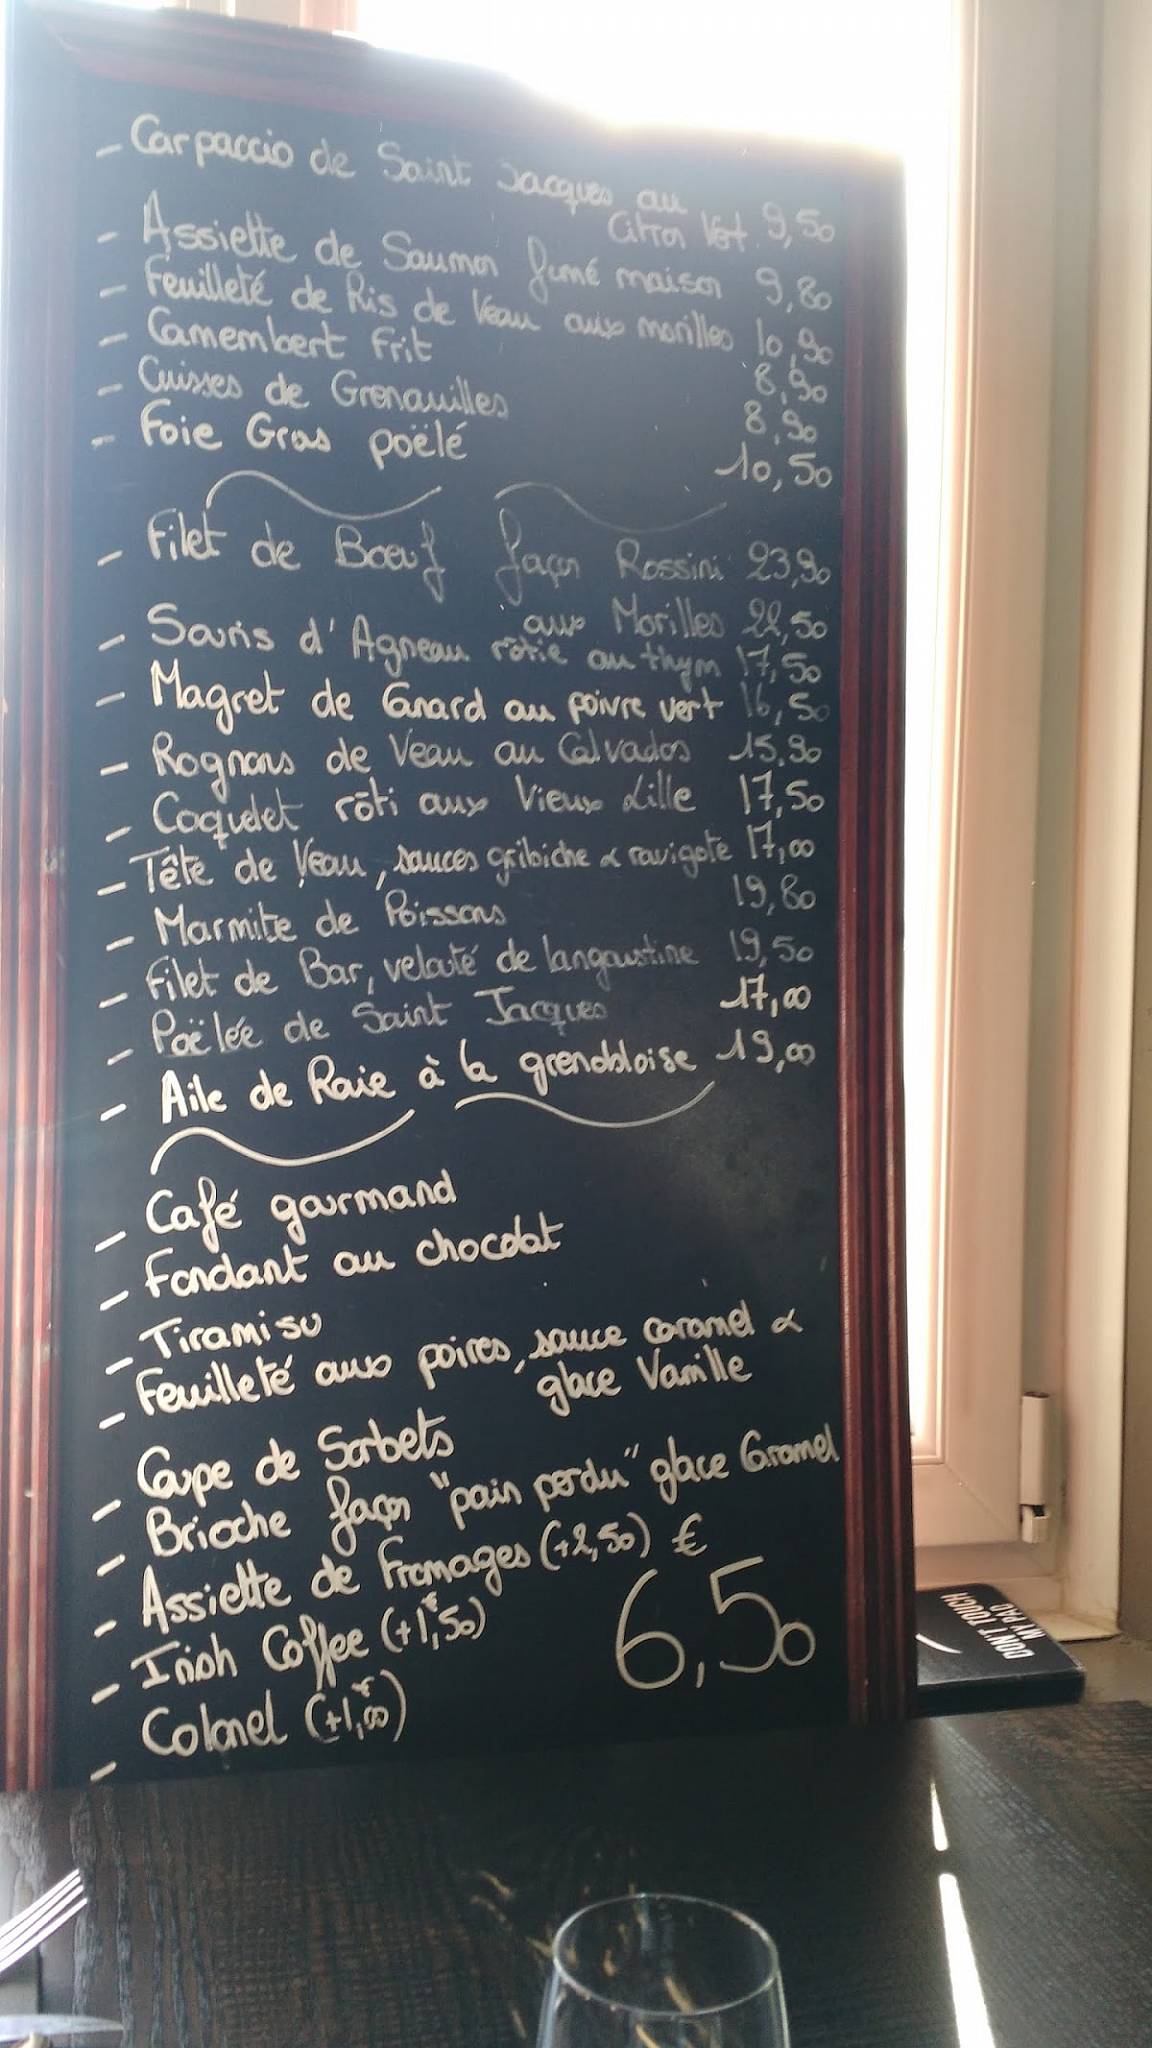 - Carpaccio de Saint Jacques au
Citron Vert 9,50
- Assiette de Saumon fumé maison 9,80
- Feuilleté de Ris de Veau aux morilles 10,90
- Camembert Frit 8,90
- Cuisses de Grenouilles 8,90
- Foie Gras poëlé 10,50
- Filet de Boeuf façon Rossini 23,90
aux Morilles 22,50
- Souris d'Agneau rôtie au thym 17,50
- Magret de Canard au poivre vert 16,50
- Rognons de Veau au Calvados 15,90
- Coquelet rôti aux Vieux Lille 17,50
- Tête de Veau, sauces gribiche & ravigote 17,00
- Marmite de Poissons 19,80
- Filet de Bar, velouté de langoustine 19,50
- Poëlée de Saint Jacques 17,00
- Aile de Raie à la grenobloise 19,00
- Café gourmand
- Fondant au chocolat
- Tiramisu
- Feuilleté aux poires, sauce caramel &
glace Vanille
- Coupe de Sorbets
- Brioche façon "pain perdu" glace Caramel
- Assiette de Fromages (+2,50) €
- Irish Coffee (+1€,50)
- Colonel (+1€,00)
6,50
DON'T TOUCH
MY PAD